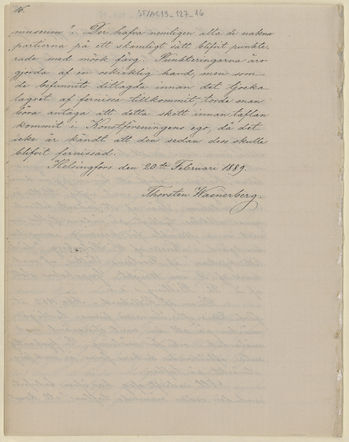 museum". Der hafva nemligen alla de nakna
partierna på ett skamligt sätt blifvit punkte-
rade med mörk färg. Punkteringarna äro
gjorda af en oskicklig hand, men som
de befunnits ditlagda innan det tjocka
lagret af fernissa tillkommit, torde man
böra antaga att detta skett innan taflan
kommit i Konstföreningens ego, då det
icke är kändt att den sedan dess skulle
blifvit fernissad.
Helsingfors den 20de Februari 1889.
Thorsten Waenerberg.